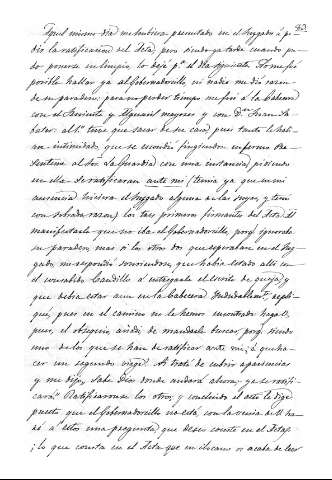 Aquel mismo dia me hubiera presentado en el Juzgado á pe-
dir la ratificacion del Acta, pero siendo ya tarde cuando pu-
do ponerse en limpio, lo dejé pª el dia siguiente. No me fué
posible hallar ya al Gobernadorcillo, ni nadie me dió razon
de su paradero; para no perder tiempo me fuí á la Cabecera
con el Teniente y Alguacil mayores y con Dⁿ Juan
al Tene que sacar de su casa, pues tanto le han
intimidado, que se escondió fingiendose enfermo. Pre-
sentéme al Sor. La Guardia con una instancia, pidiendo
en ella se ratificaran ante mi (temía ya que en mi
ausencia hiciera el Juzgado alguna de las suyas, y temí
con sobrada razon) los tres primeros firmantes del Acta. Al
manifestarle que no iba el Gobernadorcillo porqe ignoraba
su paradero, mas sí los otros dos que esperaban en el Juz-
gado, me respondió sonriendose, que habia estado allí en
el consabido Caudillo á entregarle el escrito de queja, y
que debia estar aun en la Cabecera. Indudablemte, repli-
qué, pues en el camino no le hemos encontrado; hagaV.,
pues, el obsequio, añadí, de mandarle buscar, porqe siendo
uno de los que se han de ratificar ante mí, á que ha-
cer un segundo viage? Trató de cubrir apariencias
y me dijo, Sabe Dios donde andará ahora; ya se ratifi-
cará." Ratificaronse los otros, y concluido el acto le dige:
puesto que el Gobernadorcillo no está, con la venia de V. ha-
ré á estos una pregunta, que deseo conste en el Acta:
¿lo que consta en el Acta que en ilocano se acaba de leer